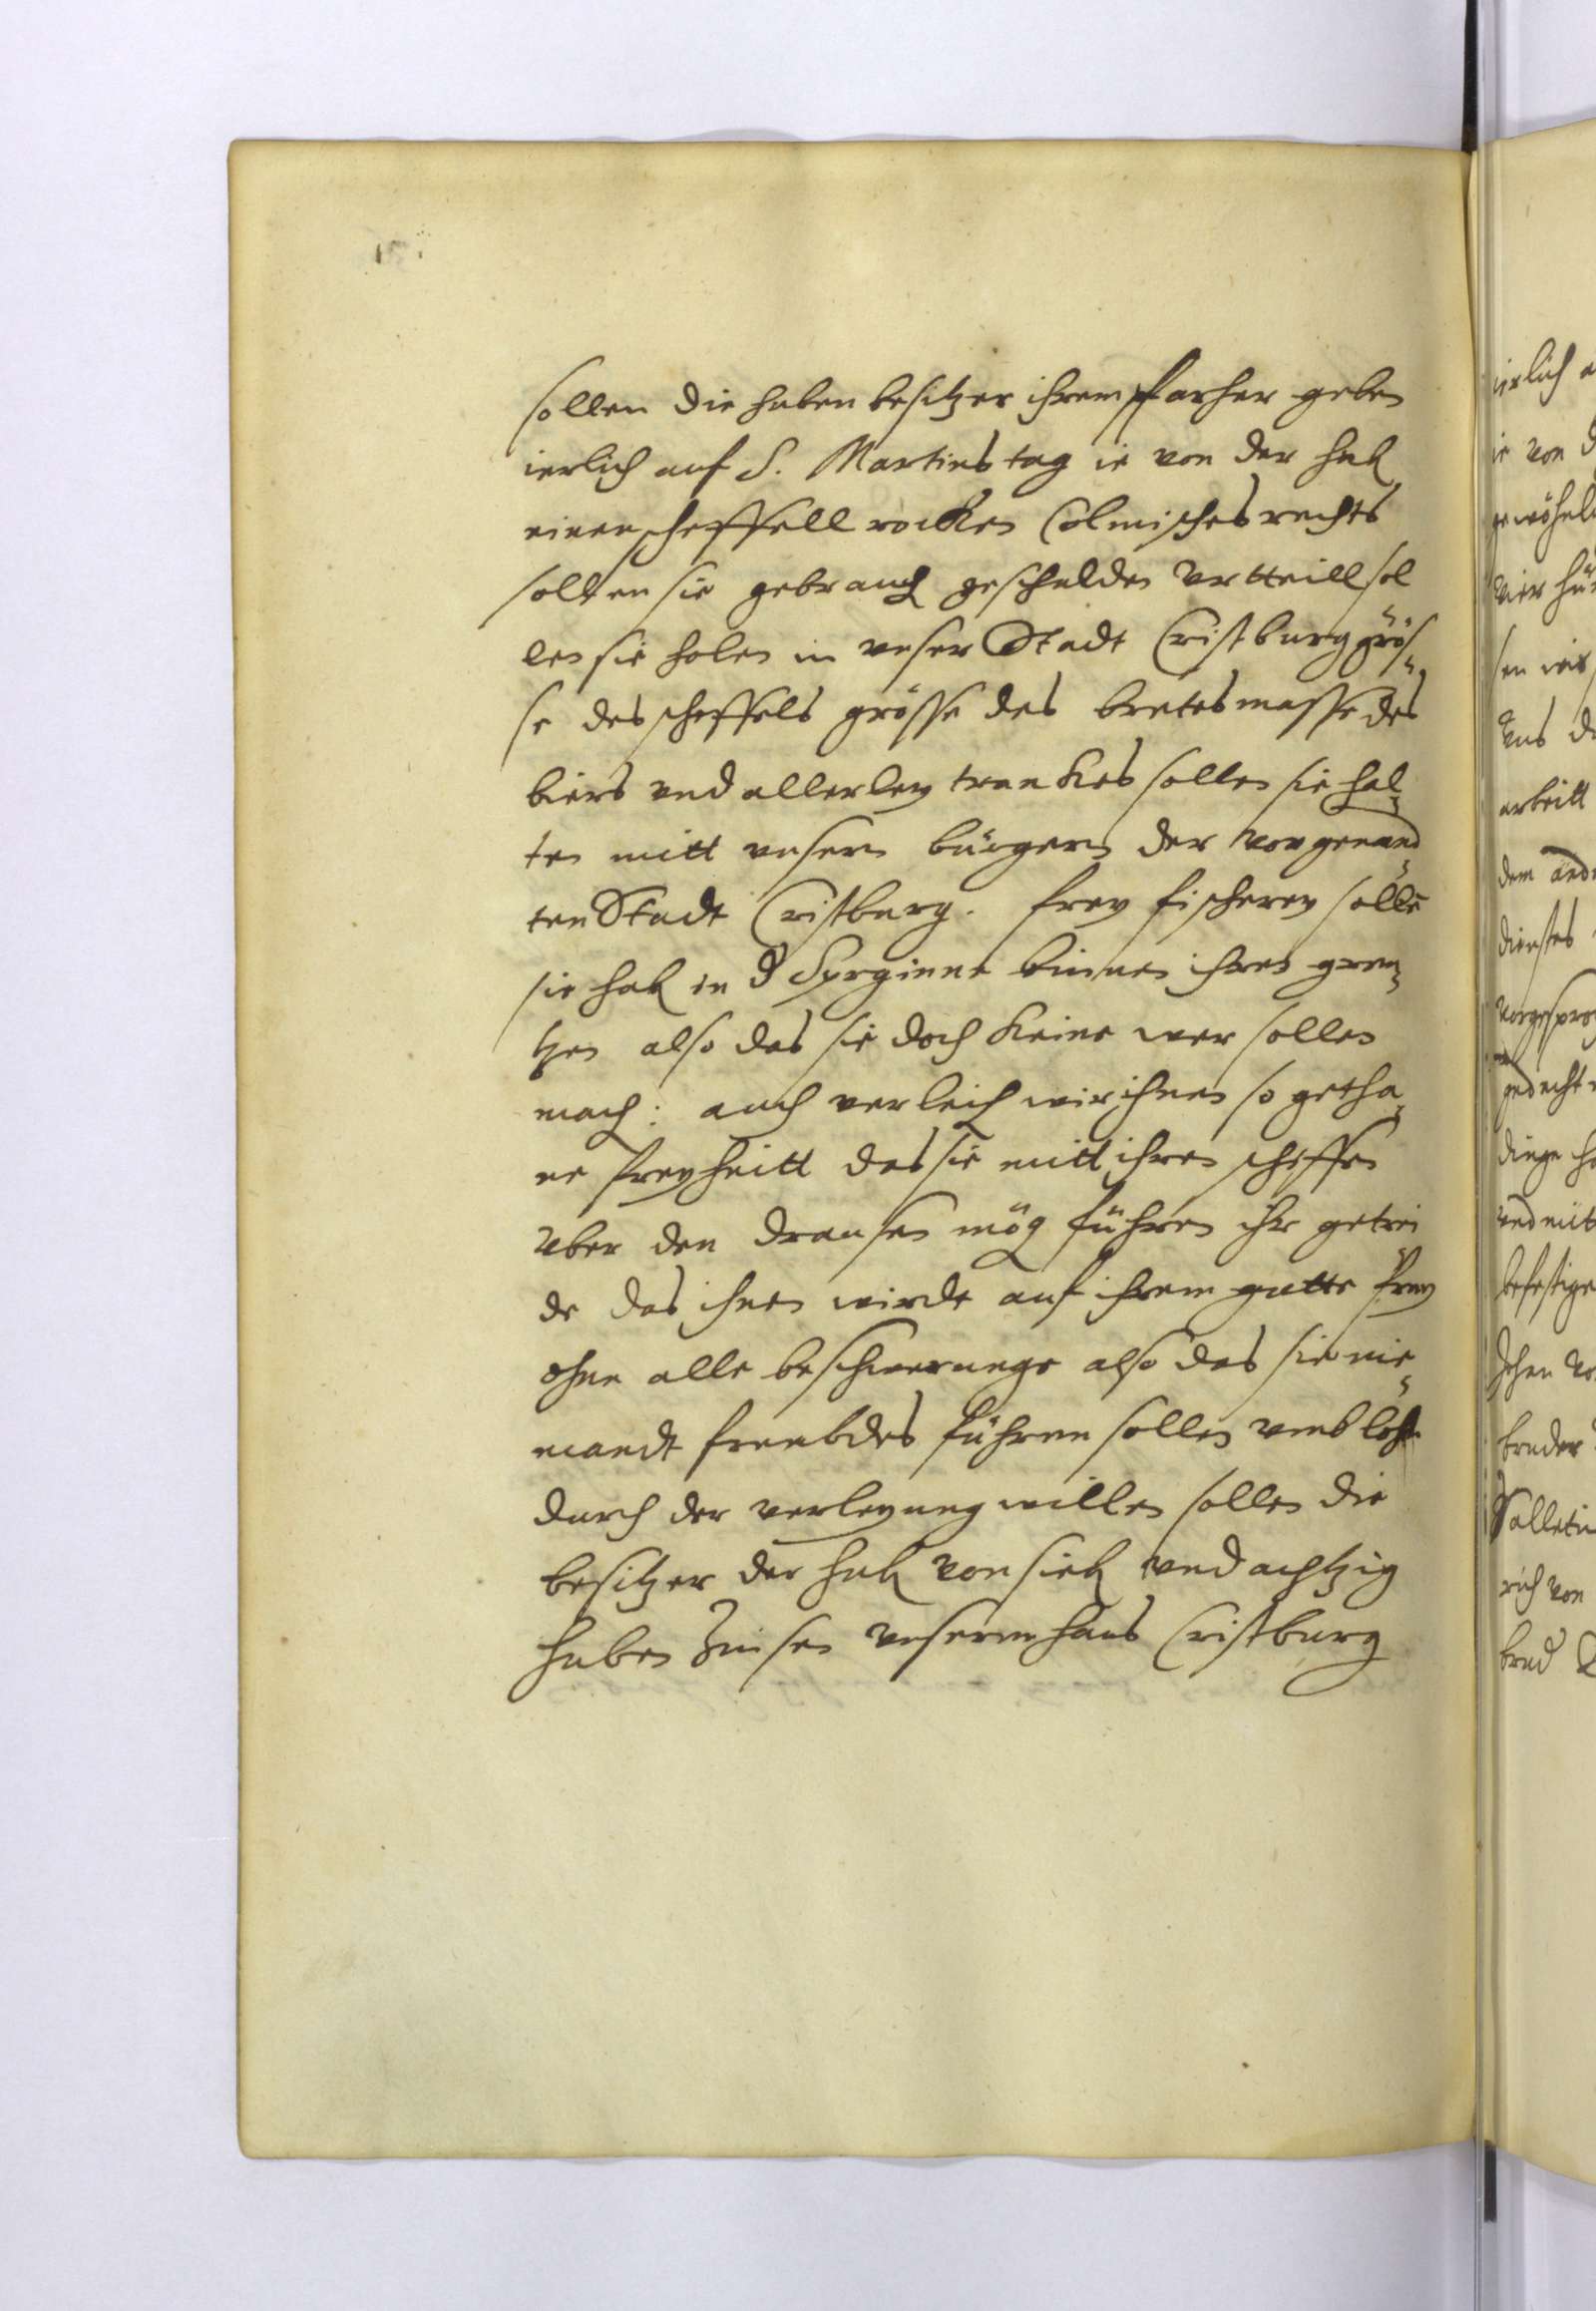 sollen die huben besitzer ihrem pfarher geben
ierlich auf S. Martins tag ie von der hub
einen scheffell rocken Colmisches rechts
sollen sie gebrauch gescholden vrtteill sol
len sie holen in vnser Stadt Cristburg grös-
se des scheffels grösse des brotes masse des
biers vnd allerley tranckes sollen sie hal-
ten mitt vnsern bürgern der vorgenand-
ten Stadt Cristburg. frey fischerey solle
sie hab in d Syrginne binnen ihren gren-
tzen also das sie doch keine wer sollen
mach: auch verleich wir ihnen so getha-
ne freyheitt das sie mitt ihren scheffen
vber den drausen mög führen ihr getrei
de das ihnen wirdt auf ihrem gutte frey
ohne alle beschwerunge also das sie nie-
mandt frembdes führen sollen vmb lohn
durch der verleyung willen sollen die
besitzer der hub von sieb vnd achtzig
huben Zinsen vnserm haus Cristburg
ierlich
ie von
vier
vns
arbeitt
dem
dienstes
gedecht
dinge
vnd mit
bruder
rich von